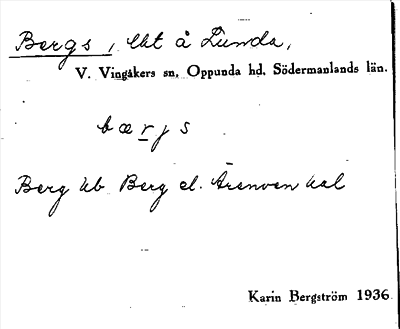 Bergs, lht å Lunda,
V. Vingåkers sn. Oppunda hd. Södermanlands län.
bærjs
Berg kb Berg el.
Karin Bergström 1936